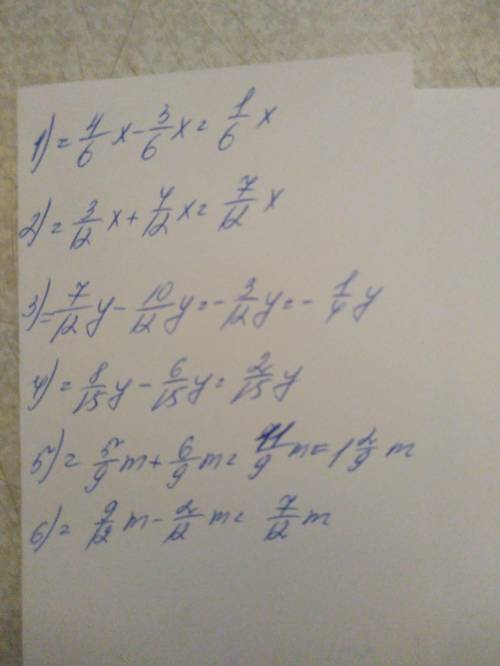 1) = 4/6 x - 3/6 x = 1/6 x
2) = 3/12 x + 4/12 x = 7/12 x
3) = 7/12 y - 10/12 y = - 3/12 y = - 1/4 y
4) = 8/15 y - 6/15 y = 2/15 y
5) = 5/9 m + 6/9 m = 11/9 m = 1 2/9 m
6) = 9/12 m - 2/12 m = 7/12 m